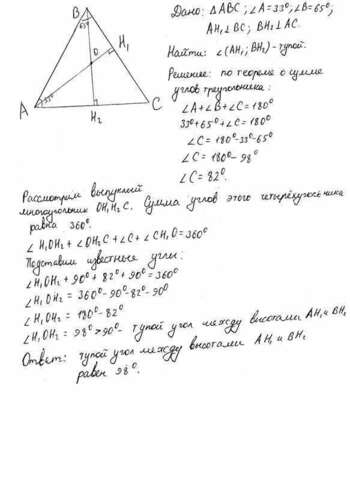 Дано: △ABC; ∠A=33°, ∠B=65°,
AH₁⊥BC; BH₂⊥AC.
Найти: ∠(AH₁; BH₂) - тупой.
Решение: по теореме о сумме
углов треугольника:
∠A+∠B+∠C=180°
33°+65°+∠C=180°
∠C=180°-33°-65°
∠C=180°-98°
∠C=82°.
B
65°
O
H₁
A
33°
H₂
C
Рассмотрим выпуклый
многоугольник OH₁H₂C. Сумма углов этого четырёхугольника
равна 360°.
∠H₁OH₂+∠OH₂C+∠C+∠CH₁O=360°
Подставим известные углы:
∠H₁OH₂+90°+82°+90°=360°
∠H₁OH₂=360°-90°-82°-90°
∠H₁OH₂=180°-82°
∠H₁OH₂=98°>90°- тупой угол между высотами AH₁ и BH₂
Ответ: тупой угол между высотами AH₁ и BH₂
равен 98°.